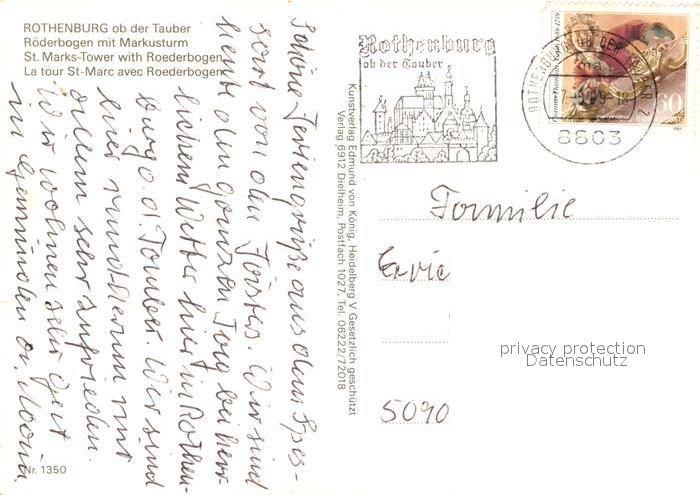 ROTHENBURG ob der Tauber
Röderbogen mit Markusturm
St. Marks-Tower with Roederbogen
La tour St-Marc avec Roederbogen
Schöne Feriengrüße aus dem Spes-
sart von den Försters. Wir sind
heute den ganzen Tag bei herr-
lichem Wetter hier in Rothen-
burg o. d. Tauber. Wir sind
hier rundherum mit
allem sehr zufrieden.
Wir wohnen sehr gut
in Gemünden a. Main.
Nr. 1350
Kunstverlag Edmund von König, Heidelberg V Gesetzlich geschützt
Verlag 6912 Dielheim, Postfach 1027, Tel. 06222/72018
Rothenburg
ob der Tauber
ROTHENBURG OB DER TAUBER 2
8803
60
Familie
Eric
5090
privacy protection
Datenschutz